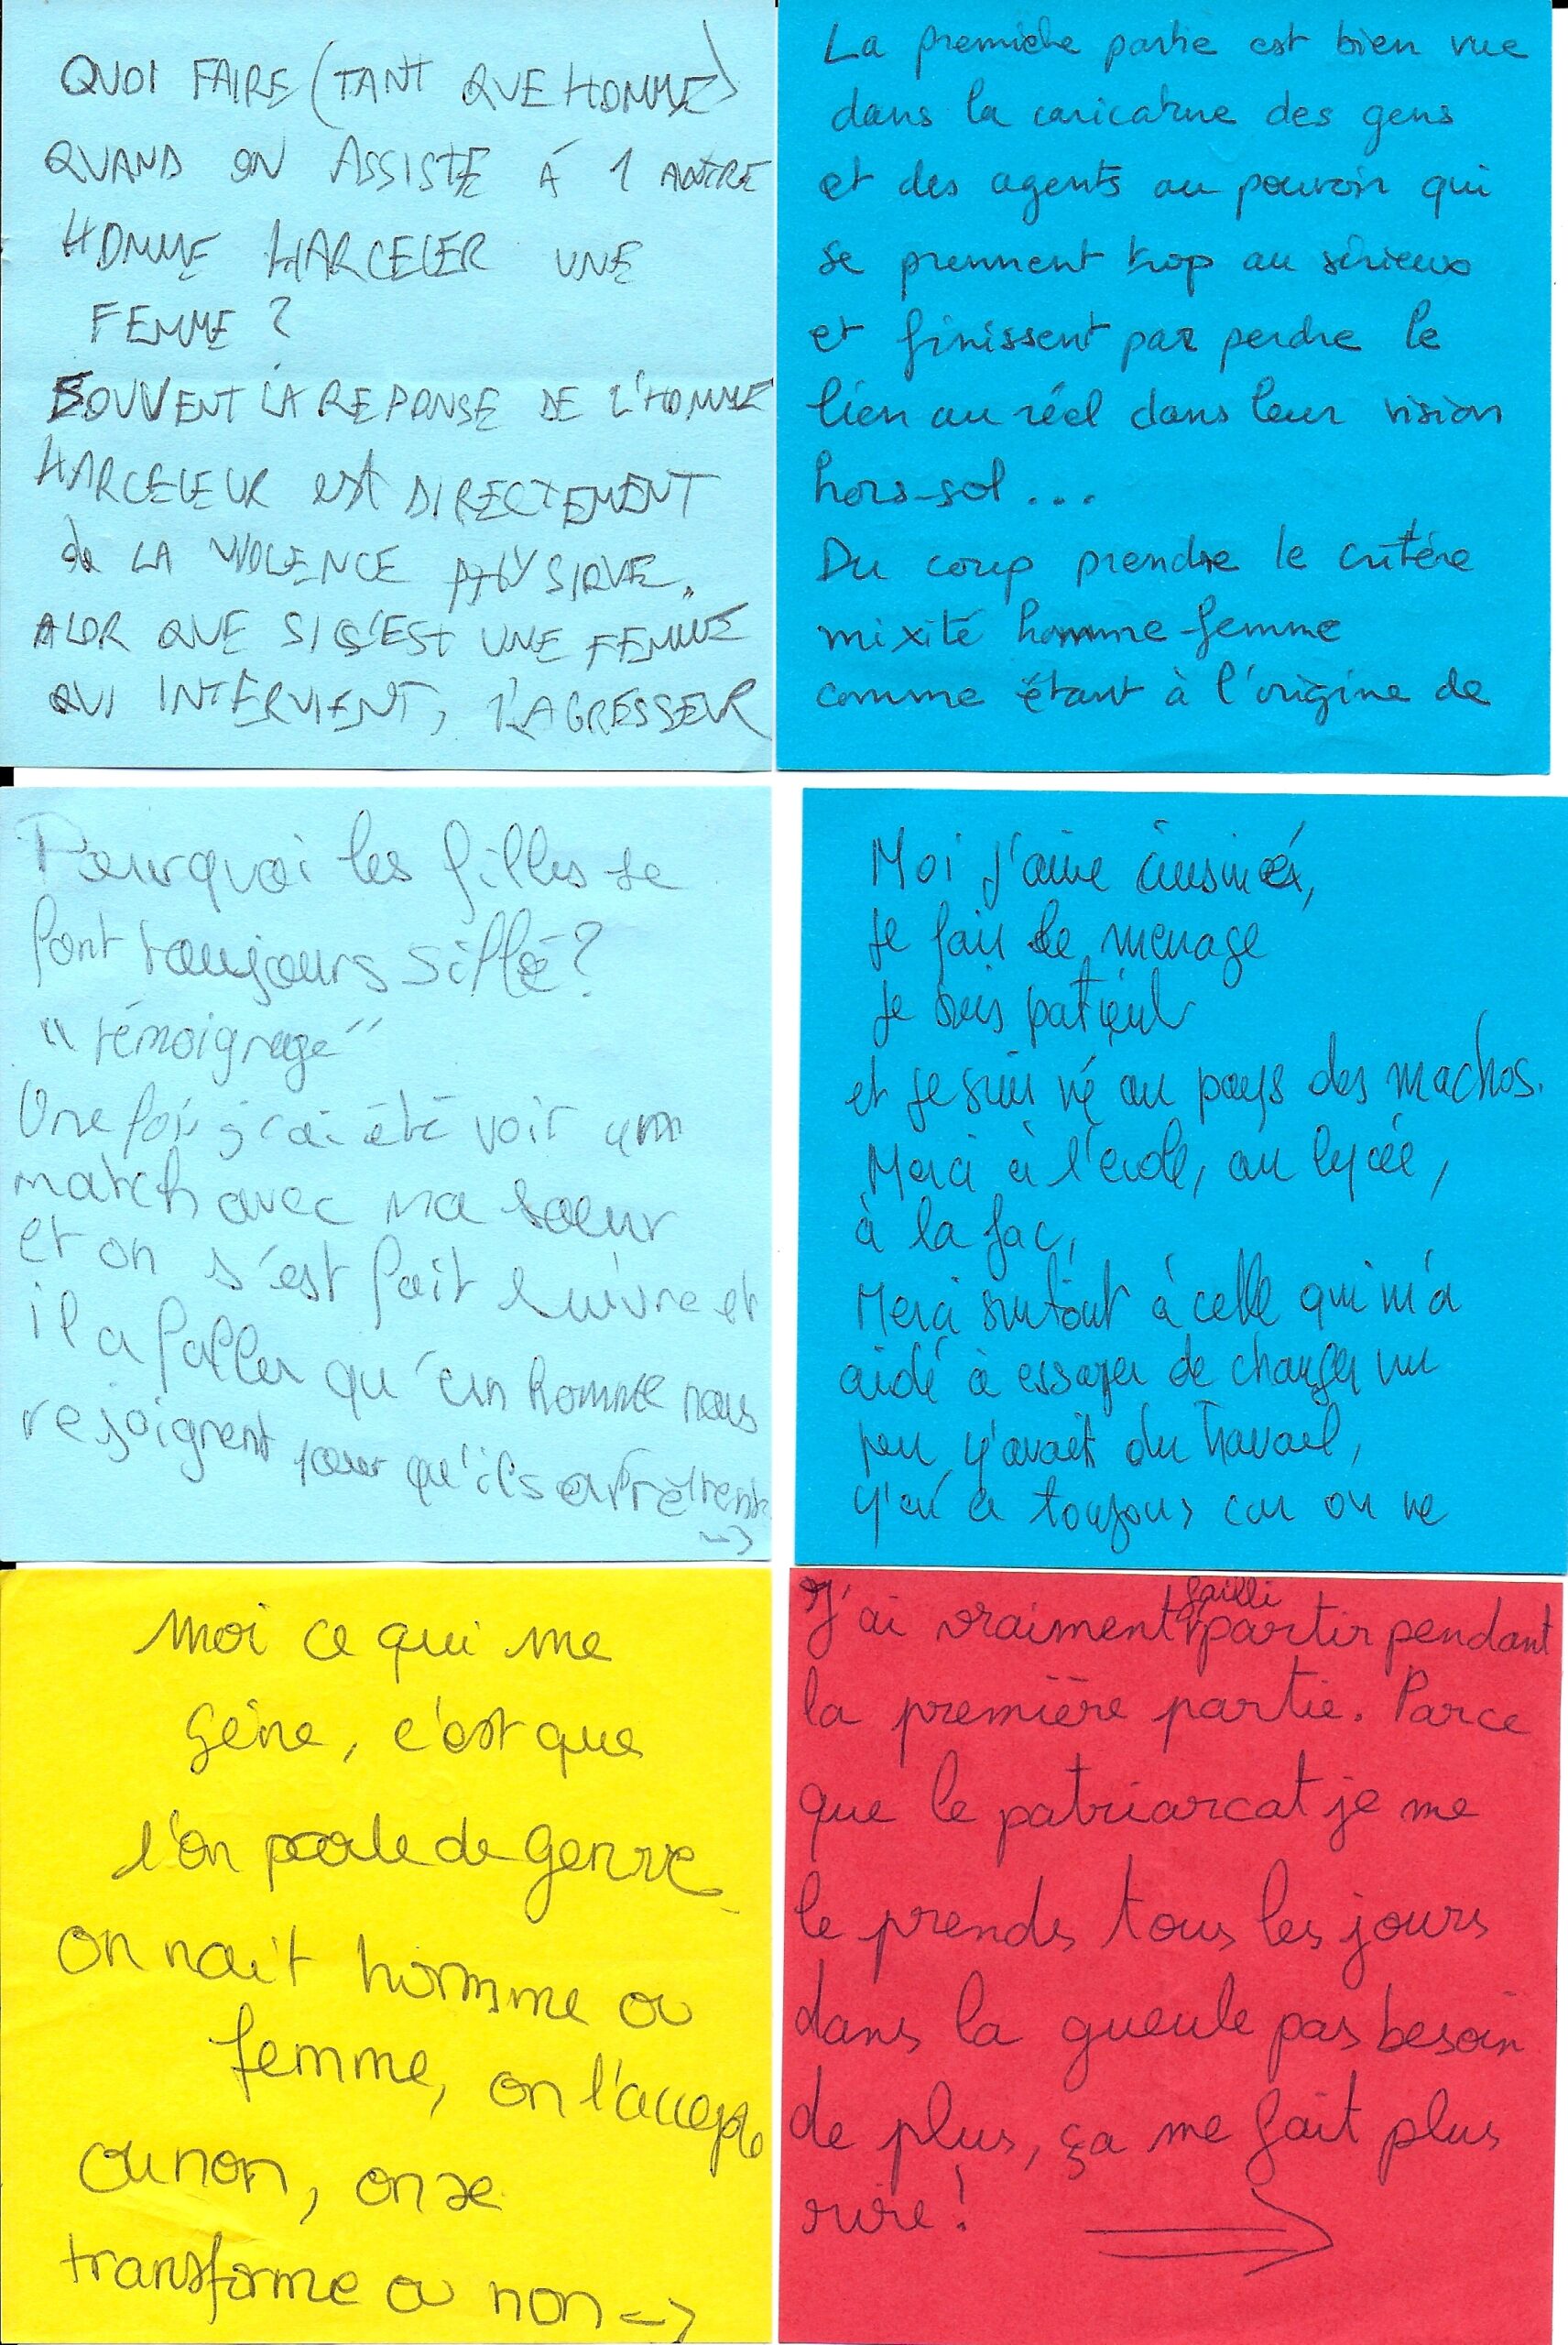 QUOI FAIRE (TANT QUE HOMME)
QUAND ON ASSISTE À 1 AUTRE
HOMME HARCELER UNE
FEMME ?
SOUVENT LA REPONSE DE L'HOMME
HARCELEUR est DIRECTEMENT
de LA VIOLENCE PHYSIQUE.
ALOR QUE SI C'EST UNE FEMME
QUI INTERVIENT, L'AGRESSEUR
La première partie est bien vue
dans la caricature des gens
et des agents au pouvoir qui
se prennent trop au sérieux
et finissent par perdre le
lien au réel dans leur vision
hors-sol...
Du coup prendre le critère
mixité homme-femme
comme étant à l'origine de
Pourquoi les filles se
font toujours sifflé ?
"témoignage"
Une fois j'ai été voir un
match avec ma soeur
et on s'est fait suivre et
il a faller qu'un homme nous
rejoignent pour qu'ils arrêtent
->
Moi j'aime cuisiner,
je fais le menage
je suis patient
et je suis né au pays des machos.
Merci à l'école, au lycée,
à la fac,
Merci surtout à celle qui m'a
aidé à essayer de changer un
peu y'avait du travail,
y'en a toujours car on ne
Moi ce qui me
gêne, c'est que
l'on parle de genre
on nait homme ou
femme, on l'accepte
ou non, on se
transforme ou non ->
J'ai vraiment failli partir pendant
la première partie. Parce
que le patriarcat je me
le prends tous les jours
dans la gueule pas besoin
de plus, ça me fait plus
rire !